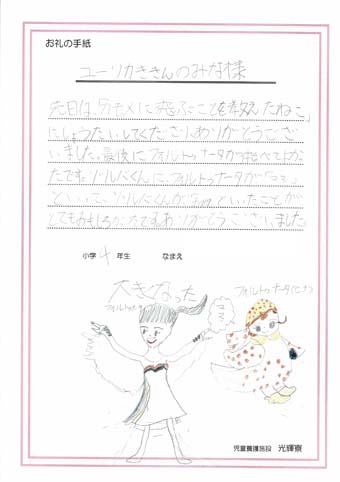 お礼の手紙
ユーリカききんのみな様
先日は、「カモメに飛ぶことを教えたねこ」
にしょうたいしてくださりありがとうござ
いました。最後にフォルトゥナータがとべてよか
たです。ゾルバくんにフォルトゥナータが「
といって、ゾルバくんが といったことが
とてもおもしろかたです。ありがとうございました。
小学4年生 なまえ
大きくなった
フォルトゥナータ
ママ
フォルトゥナータ(ヒナ)
児童養護施設 光輝寮